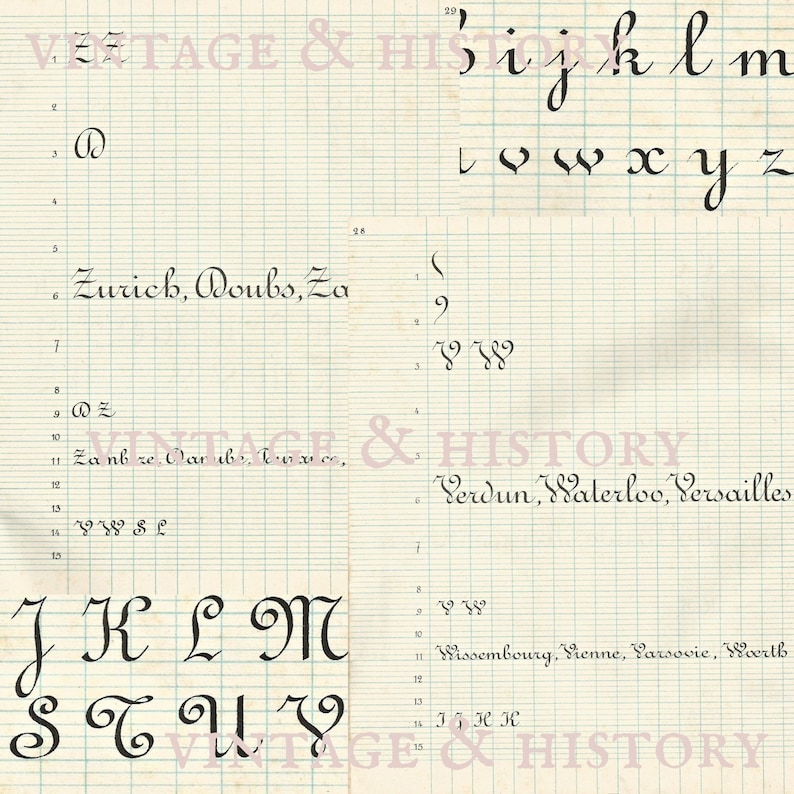 VINTAGE & HISTORY
1 Z Z
2
3 D
4
5
6 Zurich, Doubs, Za
7
8
9 D Z
10
VINTAGE & HISTORY
11 Zambèze, Danube, Durance,
12
13
14 V W S L
15
29
i j k l m
v w x y z
28
1
2
3 V W
4
5
6 Verdun, Waterloo, Versailles
7
8
9 V W
10
11 Wissembourg, Vienne, Varsovie, Wœrth
12
13
14 I J H K
15
J K L M
S T U V
VINTAGE & HISTORY